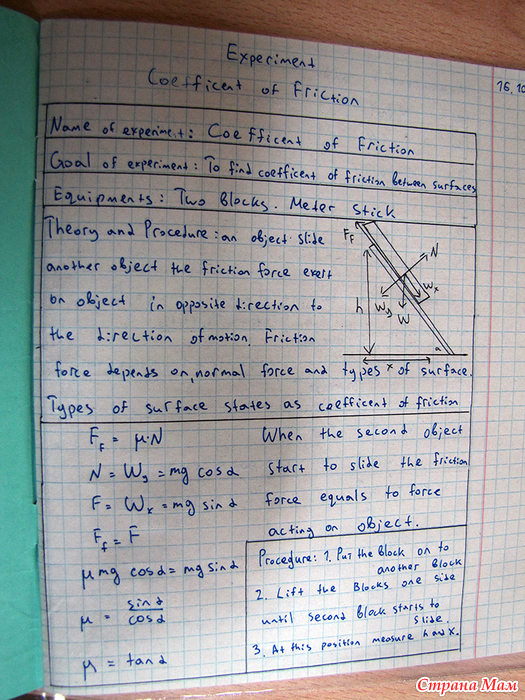 Experiment
16.10
Coefficent of Friction
Name of experiment: Coefficent of Friction
Goal of experiment: To find coefficent of friction between surfaces
Equipments: Two Blocks. Meter Stick
Theory and Procedure: an object slide
another object the friction force exert
on object in opposite direction to
the direction of motion. Friction
force depends on, normal force and types of surface.
Types of surface states as coefficent of friction
F_F
N
W_x
W_y
W
h
α
x
F_F = μ·N
N = W_y = mg cosα
F = W_x = mg sinα
F_f = F
μmg cosα = mg sinα
μ = sinα/cosα
μ = tanα
When the second object
start to slide the friction
force equals to force
acting on object.
Procedure: 1. Put the Block on to
another Block
2. Lift the Blocks one side
until second block starts to
slide.
3. At this position measure h and x.
Страна Мам